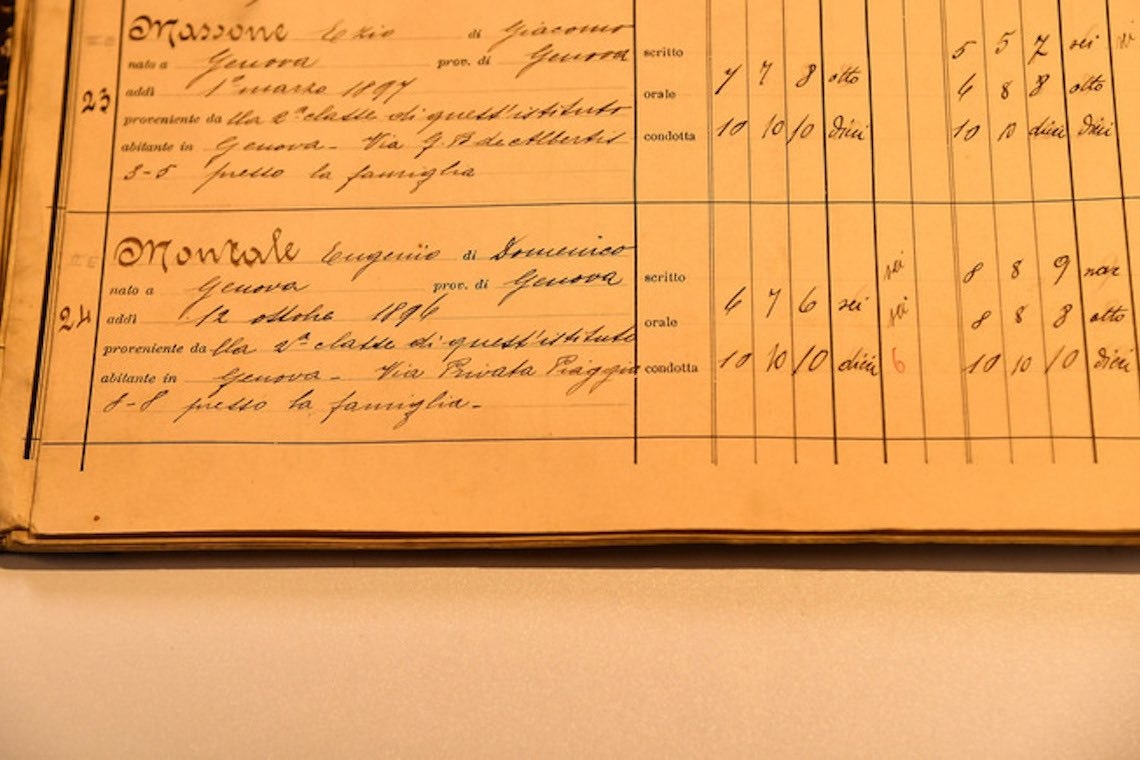 Massone Ezio di Giacomo
nato a Genova prov. di Genova
scritto 5 5 7 sei
23 addì 1° marzo 1897
orale 7 7 8 otto 6 8 8 otto
proveniente dalla 2ª classe di quest'istituto
condotta 10 10 10 dieci 10 10 dieci dieci
abitante in Genova - Via G. B de Albertis
3-5 presso la famiglia
Montale Eugenio di Domenico
nato a Genova prov. di Genova
scritto sei 8 8 9
24 addì 12 ottobre 1896
orale 6 7 6 sei sei 8 8 8 otto
proveniente dalla 2ª classe di quest'istituto
condotta 10 10 10 dieci 6 10 10 10 dieci
abitante in Genova - Via Privata Piaggio
8-8 presso la famiglia -